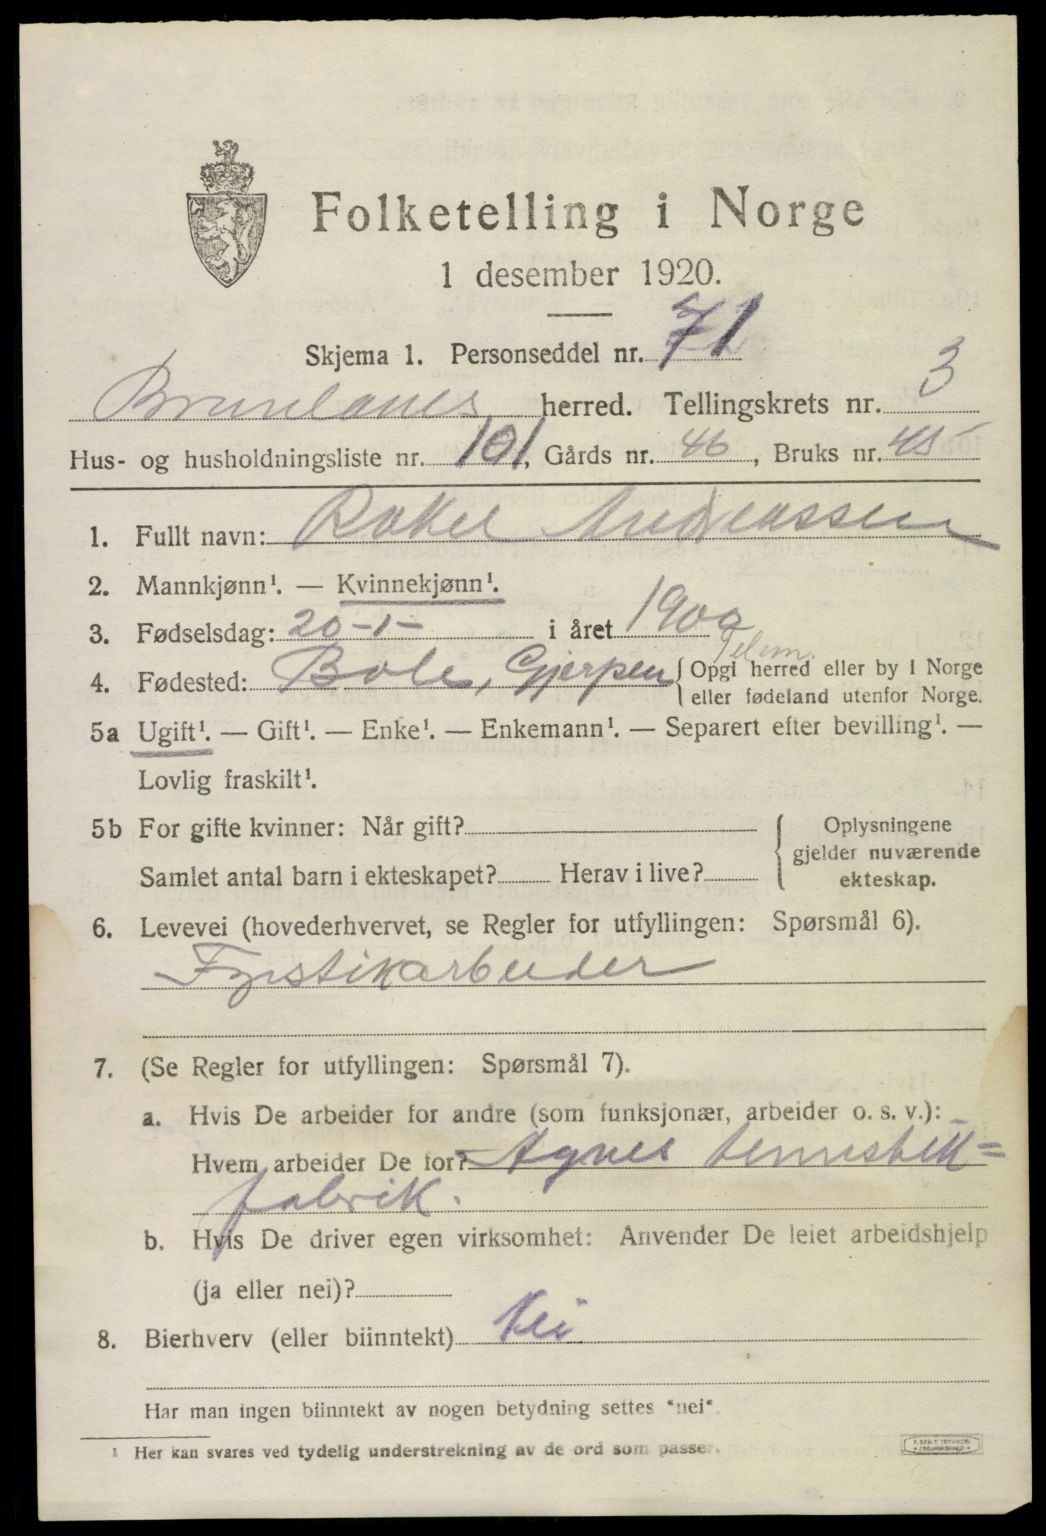 Folketelling i Norge
1 desember 1920.
Skjema 1. Personseddel nr. 71
Brunlanes herred. Tellingskrets nr. 3
Hus- og husholdningsliste nr. 101, Gårds nr. 46, Bruks nr. 45
1. Fullt navn: Rakel Andreassen
2. Mannkjønn¹. — Kvinnekjønn¹.
3. Fødselsdag: 20-1- i året 1900
Telem.
4. Fødested: Bole, Gjerpen { Opgi herred eller by i Norge
eller fødeland utenfor Norge.
5a Ugift¹. — Gift¹. — Enke¹. — Enkemann¹. — Separert efter bevilling¹. —
Lovlig fraskilt¹.
5b For gifte kvinner: Når gift?
Samlet antal barn i ekteskapet? Herav i live?
{ Oplysningene
gjelder nuværende
ekteskap.
6. Levevei (hovederhvervet, se Regler for utfyllingen: Spørsmål 6).
Fyrstikarbeider
7. (Se Regler for utfyllingen: Spørsmål 7).
a. Hvis De arbeider for andre (som funksjonær, arbeider o. s. v.):
Hvem arbeider De for? Agnes
fabrik.
b. Hvis De driver egen virksomhet: Anvender De leiet arbeidshjelp
(ja eller nei)?
8. Bierhverv (eller biinntekt) Nei
Har man ingen biinntekt av nogen betydning settes "nei".
¹ Her kan svares ved tydelig understrekning av de ord som passer.